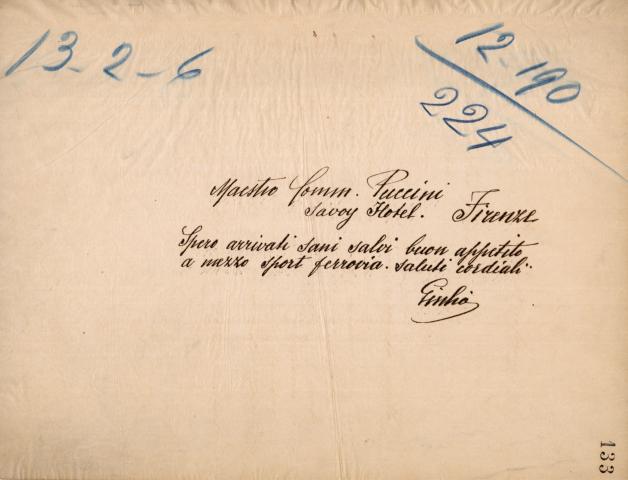 13-2-6
12-190
224
Maestro Comm. Puccini
Savoy Hotel. Firenze
Spero arrivati sani salvi buon appetito
a mezzo sport ferrovia. saluti cordiali.
Giulio
133